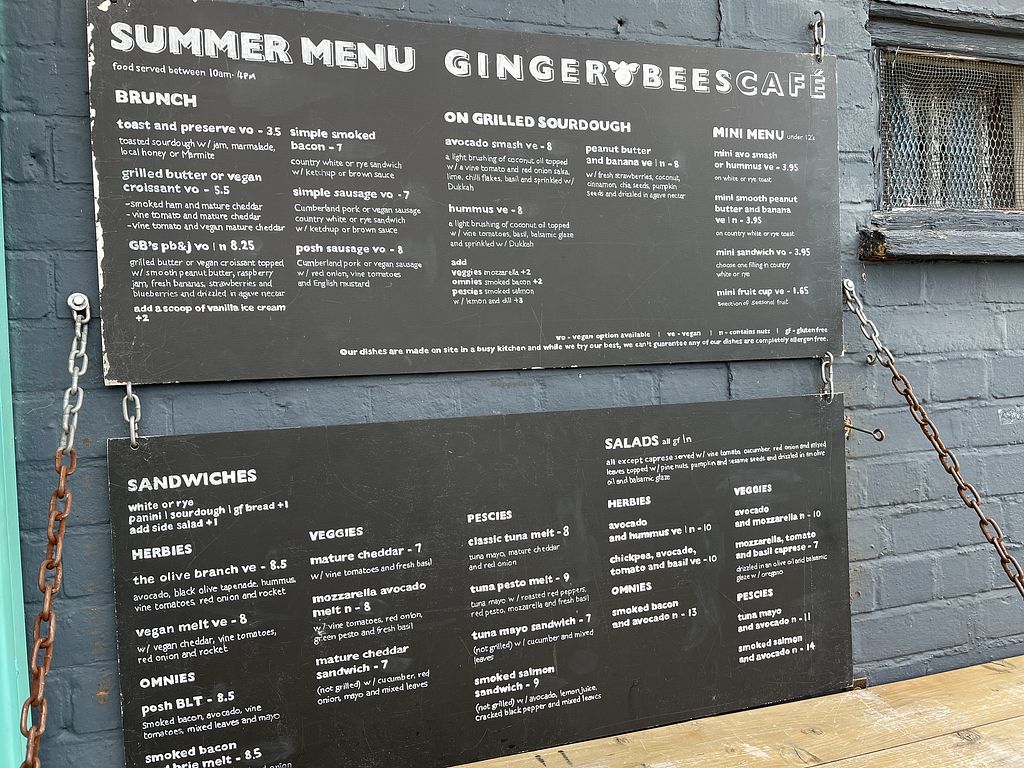 SUMMER MENU
food served between 10am - 4PM
GINGER BEES CAFÉ
BRUNCH
toast and preserve vo - 3.5
toasted sourdough w/ jam, marmalade,
local honey or Marmite
grilled butter or vegan
croissant vo - 5.5
-smoked ham and mature cheddar
- vine tomato and mature cheddar
-vine tomato and vegan mature cheddar
GB's pb&j vo | n 8.25
grilled butter or vegan croissant topped
w/ smooth peanut butter, raspberry
jam, fresh bananas, strawberries and
blueberries and drizzled in agave nectar
add a scoop of vanilla ice cream
+2
simple smoked
bacon - 7
country white or rye sandwich
w/ ketchup or brown sauce
simple sausage vo - 7
Cumberland pork or vegan sausage
country white or rye sandwich
w/ ketchup or brown sauce
posh sausage vo - 8
Cumberland pork or vegan sausage
w/ red onion, vine tomatoes
and English mustard
ON GRILLED SOURDOUGH
avocado smash ve - 8
a light brushing of coconut oil topped
w/ a vine tomato and red onion salsa,
lime, chilli flakes, basil and sprinkled w/
Dukkah
hummus ve - 8
a light brushing of coconut oil topped
w/ vine tomatoes, basil, balsamic glaze
and sprinkled w/ Dukkah
add
veggies mozzarella +2
omnies smoked bacon +2
pescies smoked salmon
w/ lemon and dill +3
peanut butter
and banana ve | n - 8
w/ fresh strawberries, coconut,
cinnamon, chia seeds, pumpkin
seeds and drizzled in agave nectar
MINI MENU under 12's
mini avo smash
or hummus ve - 3.95
on white or rye toast
mini smooth peanut
butter and banana
ve | n - 3.95
on country white or rye toast
mini sandwich vo - 3.95
choose one filling in country
white or rye
mini fruit cup ve - 1.65
selection of seasonal fruit
vo - vegan option available | ve - vegan | n - contains nuts | gf - gluten free
Our dishes are made on site in a busy kitchen and while we try our best, we can't guarantee any of our dishes are completely allergen free.
HappyCow
SANDWICHES
white or rye
panini | sourdough | gf bread +1
add side salad +1
HERBIES
the olive branch ve - 8.5
avocado, black olive tapenade, hummus,
vine tomatoes, red onion and rocket
vegan melt ve - 8
w/ vegan cheddar, vine tomatoes,
red onion and rocket
OMNIES
posh BLT - 8.5
Smoked bacon, avocado, vine
tomatoes, mixed leaves and mayo
smoked bacon
brie melt - 8.5
onion
VEGGIES
mature cheddar - 7
w/ vine tomatoes and fresh basil
mozzarella avocado
melt n - 8
w/ vine tomatoes, red onion,
green pesto and fresh basil
mature cheddar
sandwich - 7
(not grilled) w/ cucumber, red
onion, mayo and mixed leaves
PESCIES
classic tuna melt - 8
tuna mayo, mature cheddar
and red onion
tuna pesto melt - 9
tuna mayo w/ roasted red peppers,
red pesto, mozzarella and fresh basil
tuna mayo sandwich - 7
(not grilled) w/ cucumber and mixed
leaves
smoked salmon
sandwich - 9
(not grilled) w/ avocado, lemon juice,
cracked black pepper and mixed leaves
SALADS all gf | n
all except caprese served w/ vine tomato, cucumber, red onion and mixed
leaves topped w/ pine nuts, pumpkin and sesame seeds and drizzled in an olive
oil and balsamic glaze
HERBIES
avocado
and hummus ve | n - 10
chickpea, avocado,
tomato and basil ve - 10
OMNIES
smoked bacon
and avocado n - 13
VEGGIES
avocado
and mozzarella n - 10
mozzarella, tomato
and basil caprese - 7
drizzled in an olive oil and balsamic
glaze w/ oregano
PESCIES
tuna mayo
and avocado n - 11
smoked salmon
and avocado n - 14